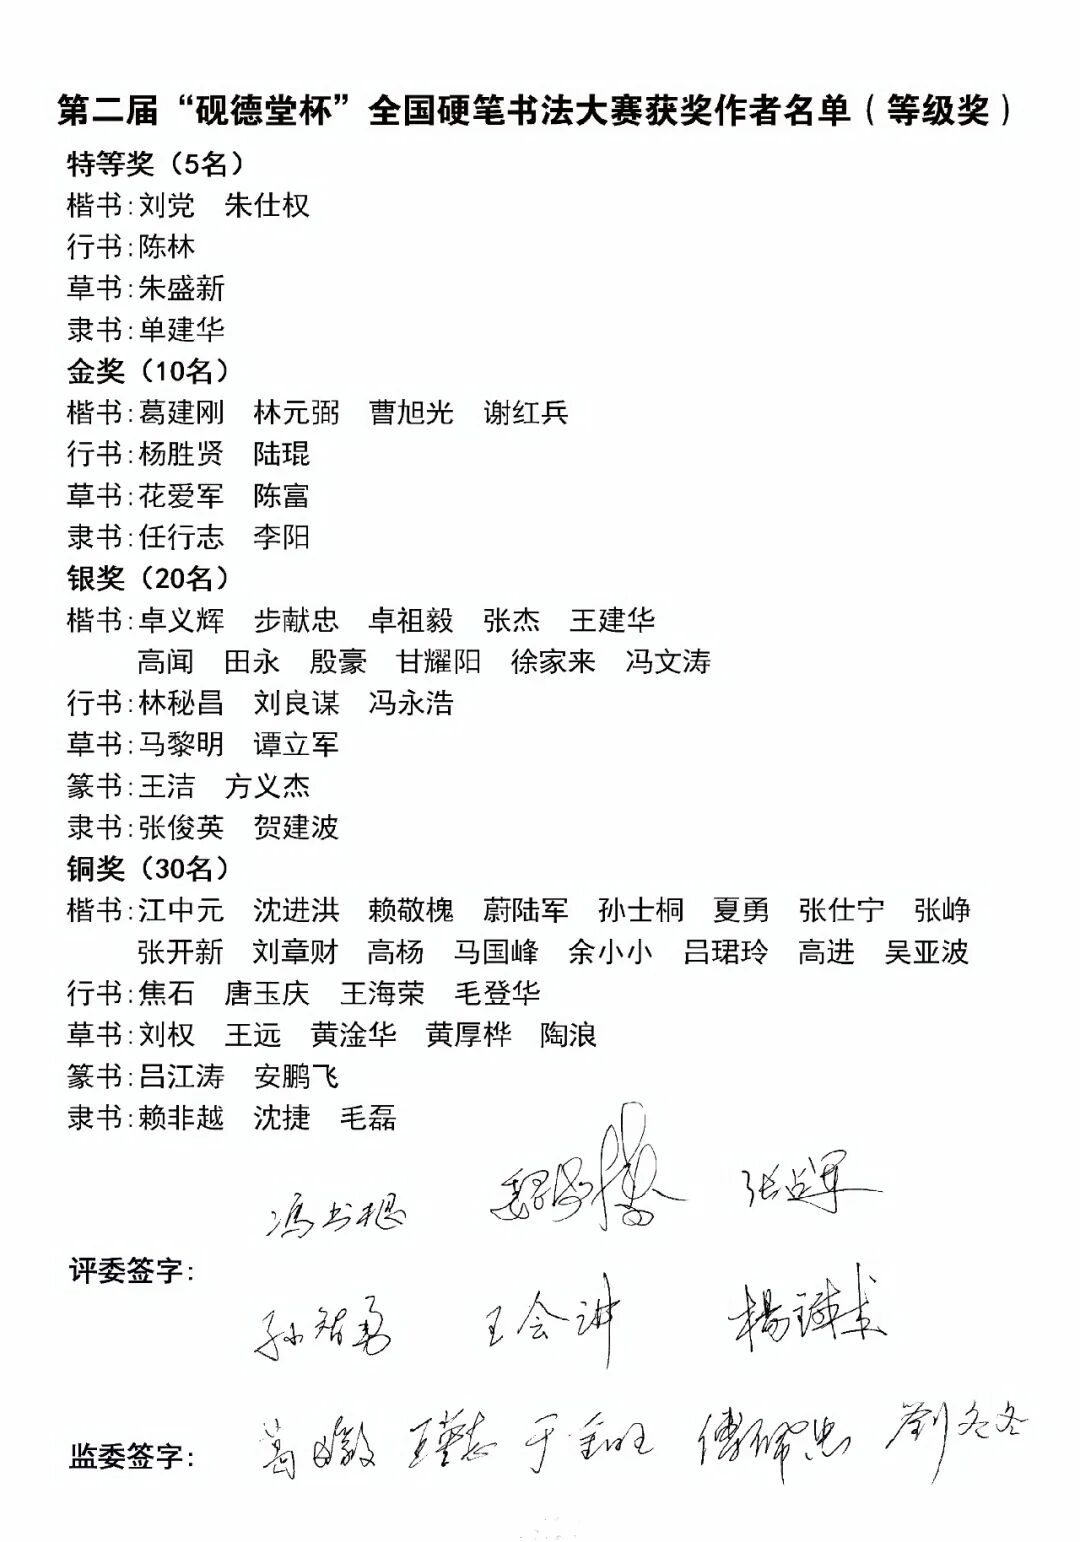 第二届“砚德堂杯”全国硬笔书法大赛获奖作者名单（等级奖）
特等奖（5名）
楷书:刘党　朱仕权
行书:陈林
草书:朱盛新
隶书:单建华
金奖（10名）
楷书:葛建刚　林元弼　曹旭光　谢红兵
行书:杨胜贤　陆琨
草书:花爱军　陈富
隶书:任行志　李阳
银奖（20名）
楷书:卓义辉　步献忠　卓祖毅　张杰　王建华
高闻　田永　殷豪　甘耀阳　徐家来　冯文涛
行书:林秘昌　刘良谋　冯永浩
草书:马黎明　谭立军
篆书:王洁　方义杰
隶书:张俊英　贺建波
铜奖（30名）
楷书:江中元　沈进洪　赖敬槐　蔚陆军　孙士桐　夏勇　张仕宁　张峥
张开新　刘章财　高杨　马国峰　余小小　吕珺玲　高进　吴亚波
行书:焦石　唐玉庆　王海荣　毛登华
草书:刘权　王远　黄淦华　黄厚桦　陶浪
篆书:吕江涛　安鹏飞
隶书:赖非越　沈捷　毛磊
张占军
评委签字:
孙智勇　王会讲
监委签字:
劉冬冬